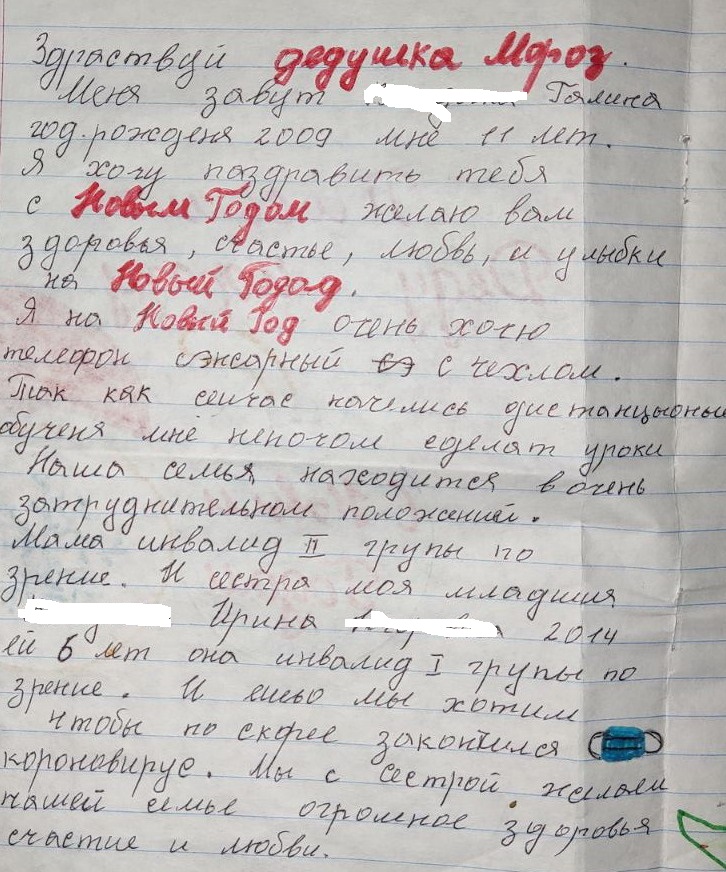 Здраствуй дедушка Мороз.
Меня завут Галина
год.рожденя 2009 мне 11 лет.
Я хочу паздравить тебя
с Новым Годом желаю вам
здоровья, счастье, любвь, и улыбки
на Новый Годад.
Я на Новый Год очень хочю
телефон сэнсарный с чехлом.
Так как сейчас начелись дистанцыоные
обученя мне непочом сделат уроки
Наша семья находится в очень
затруднительном положений.
Мама инвалид II групы по
зрение. И сестра моя младшия
Ирина 2014
ей 6 лет она инвалид I групы по
зрение. И мы хотим
чтобы по скорее закончился
короновирус. Мы с сестрой желаем
нашей семье огромное здоровья
счастие и любви.